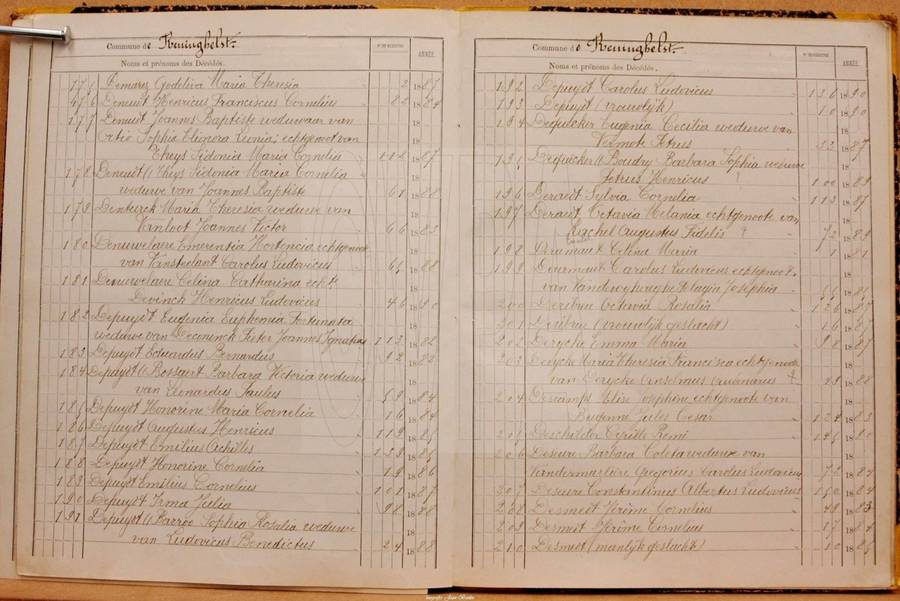 Commune de Reninghelst.
Noms et prénoms des Décédés.
ANNÉE
176 Demary Godeliva Maria Theresia 2 1887
476 Deneut Henricus Franciscus Cornelius 82 1884
177 Denuit Joannes Baptiste weduwaar van
Sophia Eleonora Leonia; echtgenoot van
Thuys Sidonia Maria Cornelia 112 1887
178 Deneuit (Thuys Sidonia Maria Cornelia
weduwe van Joannes Baptiste 61 1888
179 Denturck Maria Theresia weduwe van
Vanloot Joannes Victor 66 1883
180 Denuwelaere Emerentia Hortencia echtgenoot
van Vansteelant Carolus Ludovicus 64 1888
181 Denuwelaere Celina Catharina echt.
Devinck Henricus Ludovicus 46 1890
182 Depuydt Eugenia Euphemia Fortunata
weduwe van Deconinck Pieter Joannes Ignatius 113 1882
183 Depuydt Eduardus Bernardus 92 1883
184 Depuydt (Bossaert Barbara Victoria weduwe
van Leonardus Paulus 59 1884
185 Depuydt Honorine Maria Cornelia 16 1884
186 Depuydt Augustus Henricus 119 1885
187 Depuydt Emilius Achilles 128 1886
188 Depuydt Honorine Cornelia 19 1886
189 Depuydt Emilius Cornelius 101 1887
190 Depuydt Irma Julia 98 1888
191 Depuydt (Barroo Sophia Rosalia weduwe
van Ludovicus Benedictus 24 1888
Commune de Reninghelst.
Noms et prénoms des Décédés.
ANNÉE
192 Depuydt Carolus Ludovicus 136 1890
193 Depuydt (vrouwlijk) 10 1890
194 Eugenia Cecilia weduwe van
Vermote Petrus 32 1887
195 (Boudry Barbara Sophia weduwe
Petrus Henricus 100 1889
196 Deraedt Sylvia Cornelia 113 1887
197 Deraedt Octavia Melania echtgenoote van
Rachel Augustus Fidelis ? 72 1889
198 Deramaux Celina Maria 1 1881
199 Deramaux Carolus Ludovicus echtgenoot
van Josephia
200 Octavia Rosalia 126 1887
201 (vrouwlijk geslacht) 16 1887
202 Derycke Emma Maria 98 1887
203 Derycke Maria Theresia Francisca echtgenoote
van Derycke Anselmus 29 1888
204 Descamps Elise Josephine echtgenoote van
Eugenne Jules Cesar 124 1883
205 Deschilder Cyrille Remi
206 Deseure Barbara Coleta weduwe van
Vandermarlière Gregorius Carolus Ludovicus 72 1884
207 Deseure Constantinus Albertus Ludovicus 150 1884
208 Desmedt Jérôme Cornelius 49 1883
209 Desmedt Jérôme Cornelius 17 1884
210 Desmedt (manlijk geslacht) 10 1885